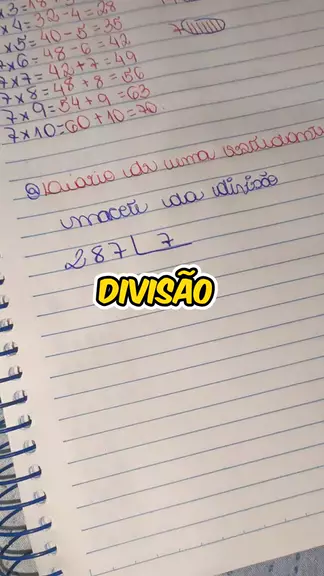 x3=18
x4=32-4=28
x5=40-5=35
7x6=48-6=42
7x7=42+7=49
7x8=48+8=56
7x9=54+9=63
7x10=60+10=70
7
@diario de uma estudante
macete da divisão
287 7
DIVISÃO